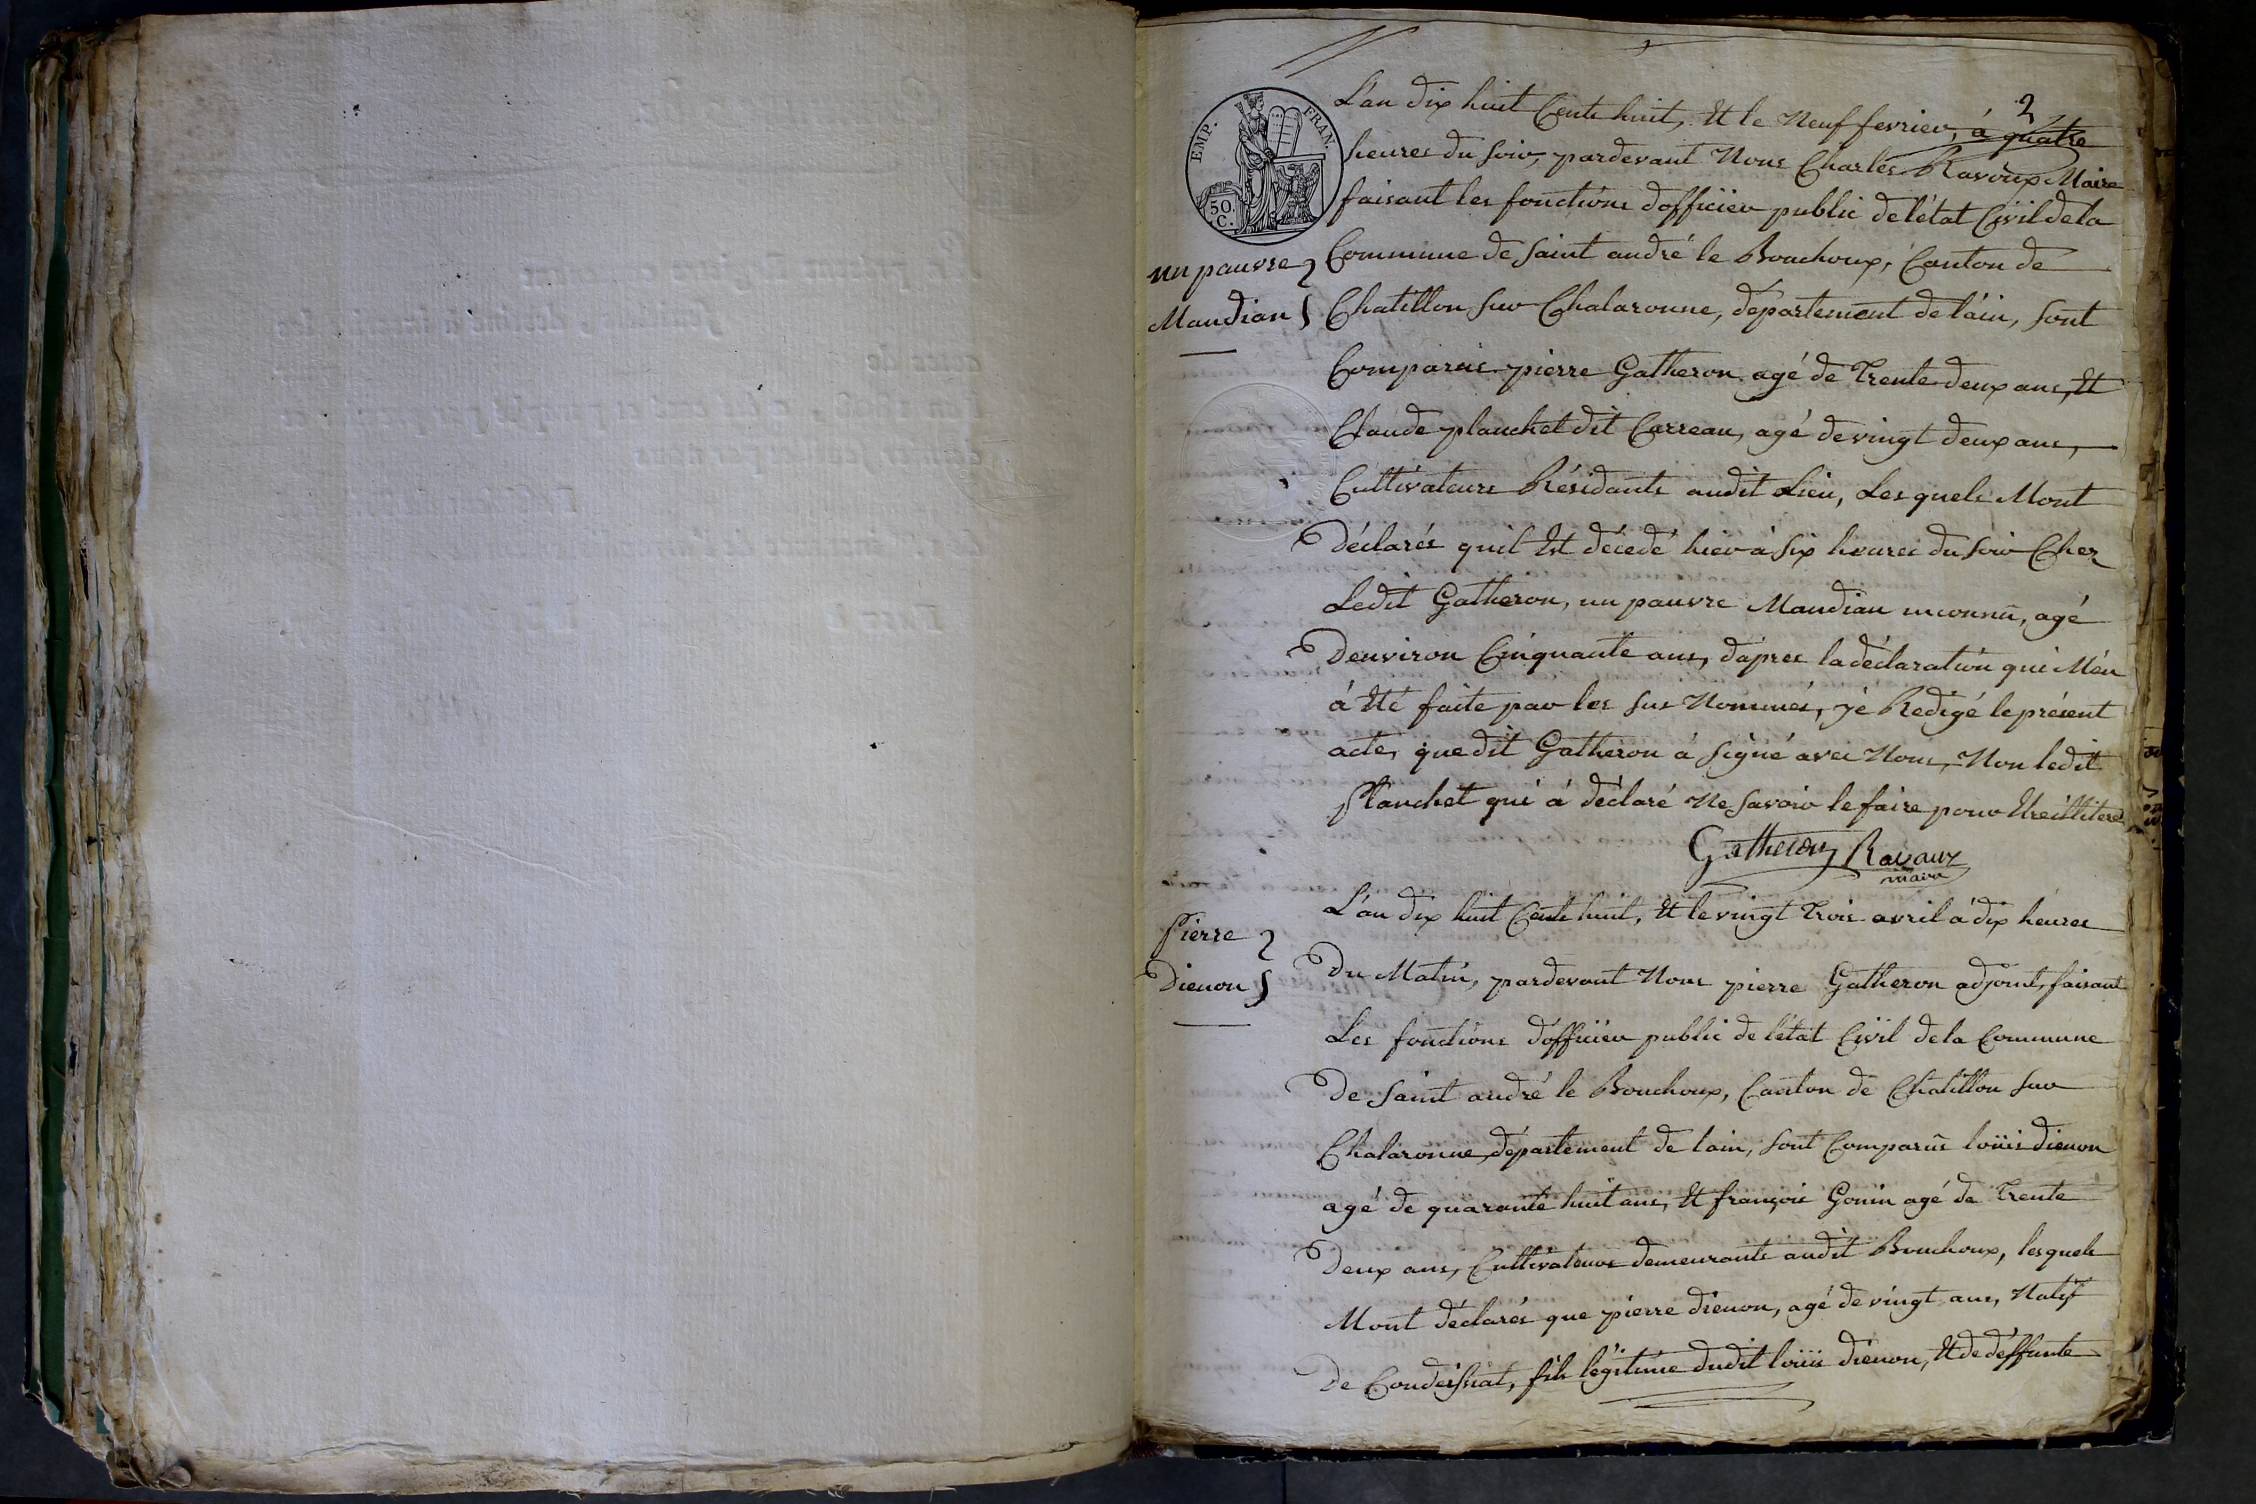 2
EMP. FRAN.
50.
C.
L'an dix huit Cents huit, Et le Neuf fevrier, á quatre
heures du soir, pardevant Nous Charles Ravoux Maire
faisant les fonctions d'officier public de l'état Civil de la
un pauvre
Commune de saint andré le Bouchoux, Canton de
Maudian
Chatillon sur Chalaronne, département de l'ain, sont
Comparus pierre Gatheron agé de Trente deux ans, Et
Claude planchet dit Carreau, agé de vingt deux ans,
Cultivateurs Résidants audit Lieu, Lesquels Mont
Déclarés quil Est décedé hier à six heures du soir Chez
Ledit Gatheron, un pauvre Maudian inconnu, agé
Denviron Cinquante ans, d'apres la déclaration qui M'en
á Eté faite par les sus Nommés, j'é Redigé le présent
acte, que dit Gatheron á signé avec Nous, Non ledit
Planchet qui á déclaré Ne savoir le faire pour Etre illiteré
Gatheron Ravaux
maire
L'an dix huit Cents huit, Et le vingt Trois avril á dix heures
Pierre
Dienon
Du Matin, pardevant Nous pierre Gatheron adjoint, faisant
Les fonctions d'officier public de l'état Civil de la Commune
De saint andré le Bouchoux, Canton de Chatillon sur
Chalaronne, département de lain, sont Comparus loüis dienon
agé de quarante huit ans, Et françois Gonin agé de Trente
Deux ans, Cultivateurs demeurants audit Bouchoux, lesquels
Mont déclarés que pierre dienon, agé de vingt ans, Natif
De Condeissiat, fils légitime dudit loüis dienon, Et de déffunte